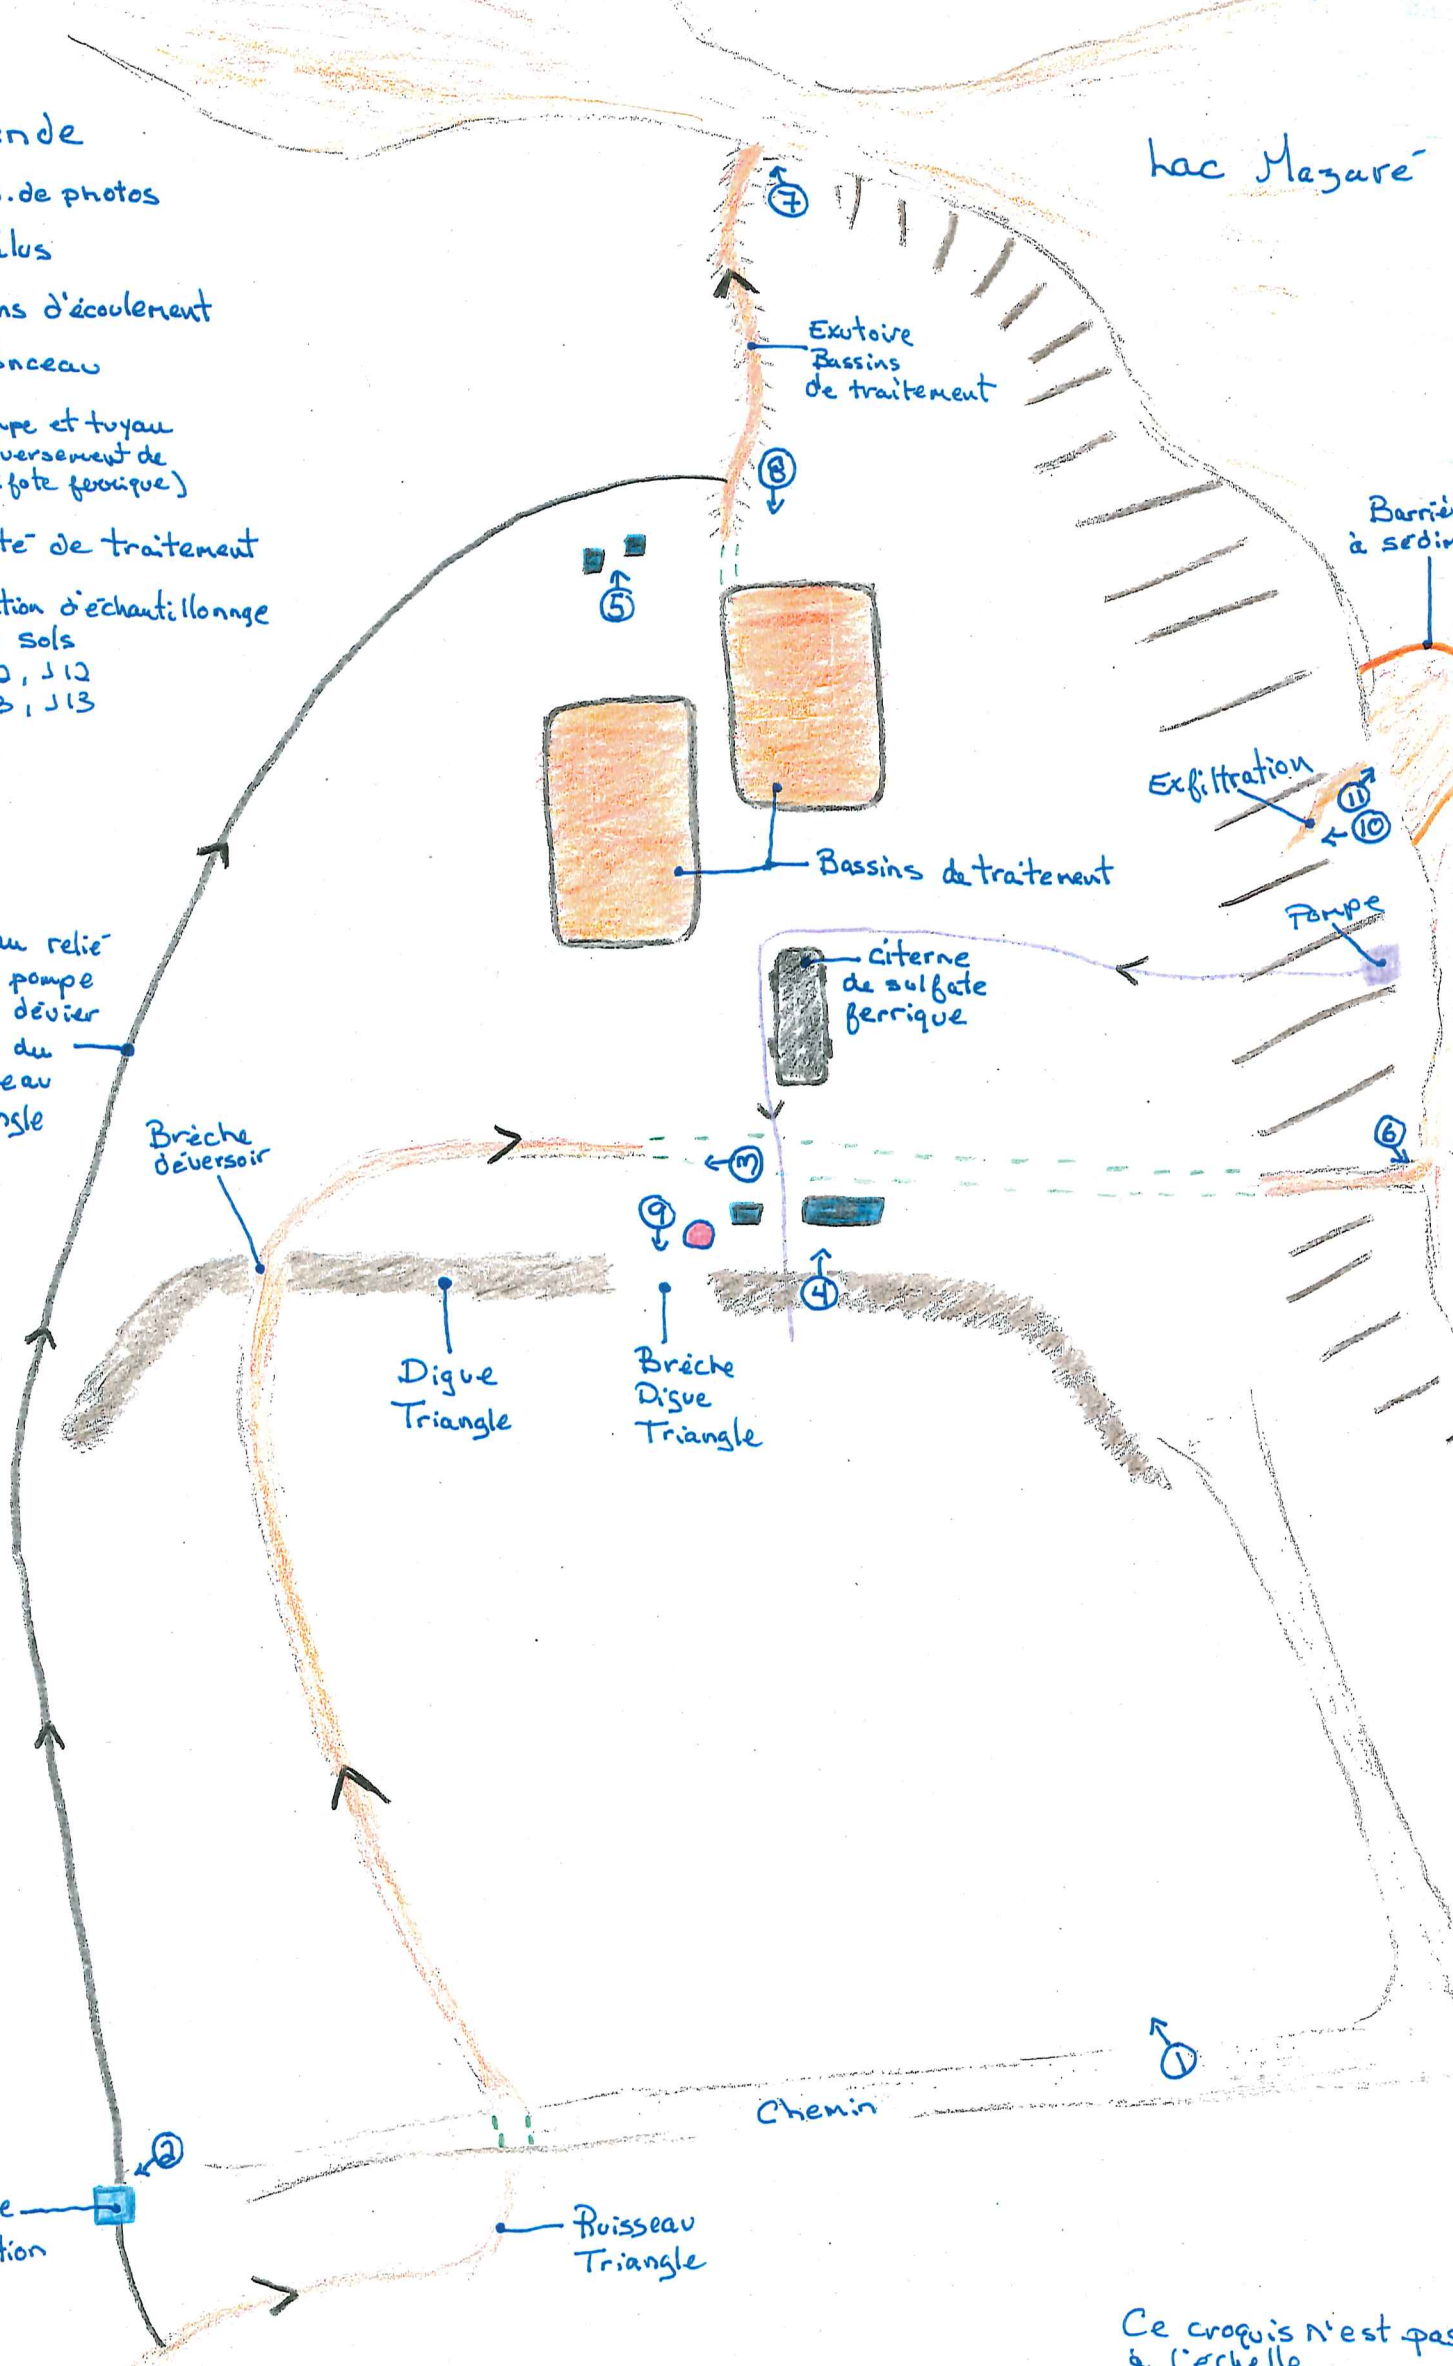 nde
. de photos
lus
ns d'écoulement
onceau
pe et tuyau
versement de
fate ferrique)
té de traitement
tion d'échantillonnge
sols
2, J12
3, J13
Lac Mazaré
7
Exutoire
Bassins
de traitement
8
5
Barriè
à sédim
Exfiltration
11
10
Bassins de traitement
Pompe
citerne
de sulfate
ferrique
au relié
pompe
dévier
du
eau
ngle
Brèche
déversoir
6
3
9
4
Digue
Triangle
Brèche
Digue
Triangle
1
Chemin
2
e
tion
Ruisseau
Triangle
Ce croquis n'est pas
à l'échelle